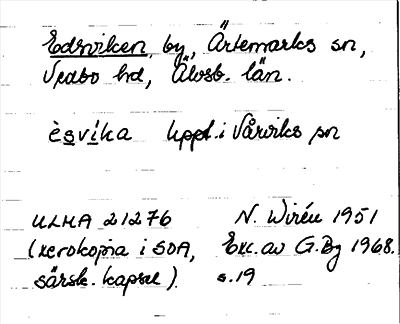 Edsviken, by, Ärtemarks sn,
Vedbo hd, Älvsb. län.
èsvíka Uppt. i Vårviks sn
ULMA 21276 N. Wirén 1951
(xerokopia i SOA, Exc. av G. Bg 1968.
särsk. kapsel). s. 19